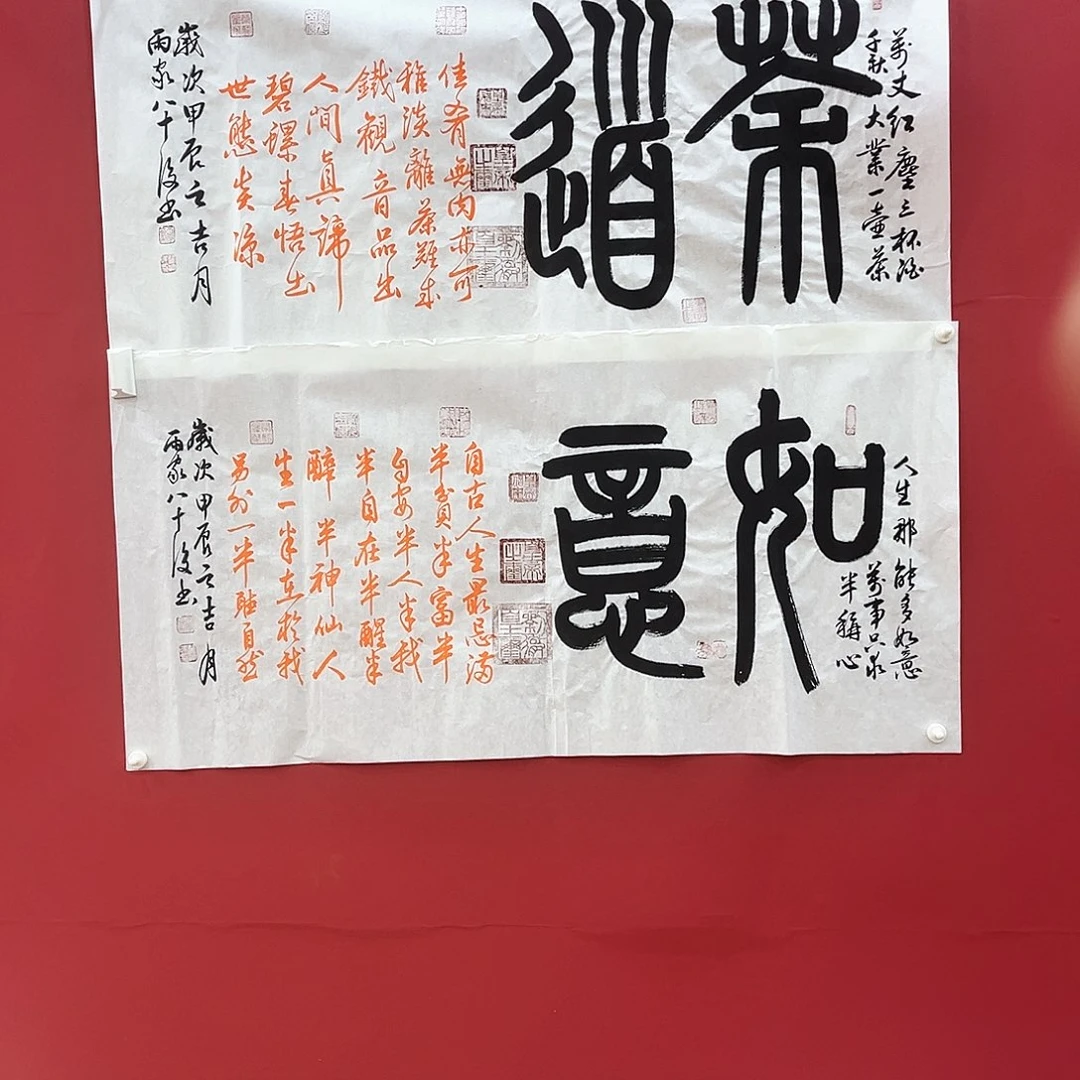 萬丈紅塵三杯酒
千秋大業一壺茶
茶道
佳肴無肉亦可
雅淡離茶難成
鐵觀音品出
人間真諦
碧螺春悟出
世態炎凉
歲次甲辰之吉月
雨家八十後書
人生那能多如意
萬事只求半稱心
如意
自古人生最忌滿
半貧半富半
自安半人半我
半自在半醒半
醉半神仙人
生一半在於我
另外一半聽自然
歲次甲辰之吉月
雨家八十後書